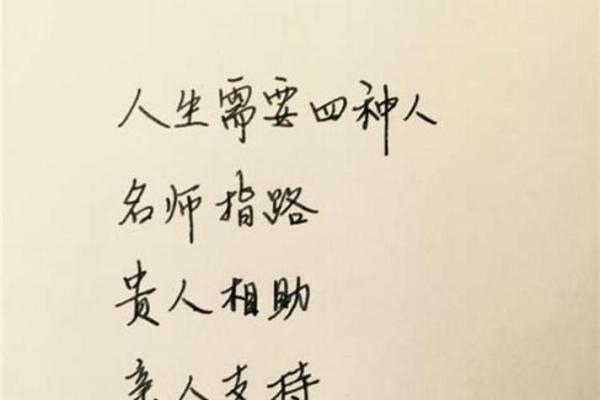 人生需要四种人
名师指路
贵人相助
亲人支持